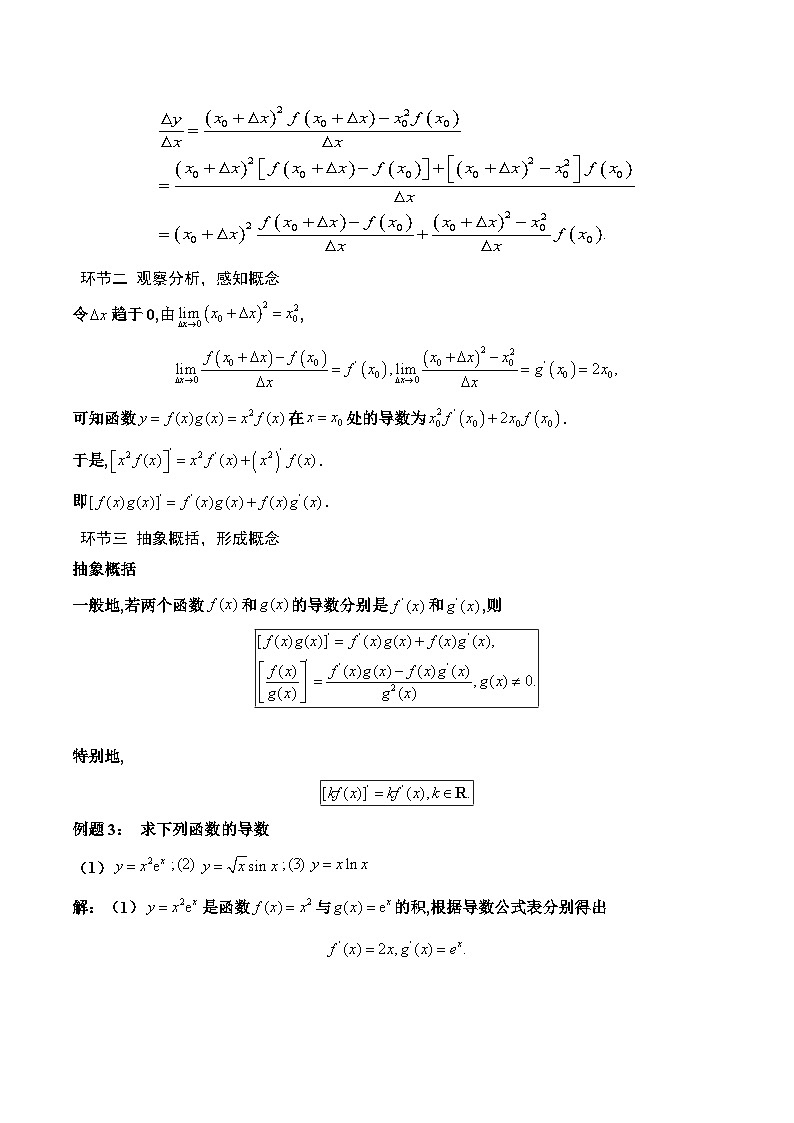 △y/△x = ((x₀+△x)² f(x₀+△x) − x₀² f(x₀))/△x
= ((x₀+△x)² [f(x₀+△x) − f(x₀)] + [(x₀+△x)² − x₀²] f(x₀))/△x
= (x₀+△x)² (f(x₀+△x) − f(x₀))/△x + ((x₀+△x)² − x₀²)/△x f(x₀).
环节二 观察分析，感知概念
令△x趋于0,由lim_{△x→0}(x₀+△x)² = x₀²,
lim_{△x→0} (f(x₀+△x) − f(x₀))/△x = f'(x₀), lim_{△x→0} ((x₀+△x)² − x₀²)/△x = g'(x₀) = 2x₀,
可知函数y = f(x)g(x) = x² f(x)在x = x₀处的导数为x₀² f'(x₀) + 2x₀ f(x₀).
于是,[x² f(x)]' = x² f'(x) + (x²)' f(x).
即[f(x)g(x)]' = f'(x)g(x) + f(x)g'(x).
环节三 抽象概括，形成概念
抽象概括
一般地,若两个函数f(x)和g(x)的导数分别是f'(x)和g'(x),则
[f(x)g(x)]' = f'(x)g(x) + f(x)g'(x),
[f(x)/g(x)]' = (f'(x)g(x) − f(x)g'(x))/g²(x), g(x) ≠ 0.
特别地,
[kf(x)]' = kf'(x), k∈R.
例题3： 求下列函数的导数
（1）y = x²eˣ ;(2) y = √x sin x ;(3) y = x ln x
解:（1）y = x²eˣ是函数f(x) = x²与g(x) = eˣ的积,根据导数公式表分别得出
f'(x) = 2x, g'(x) = eˣ.